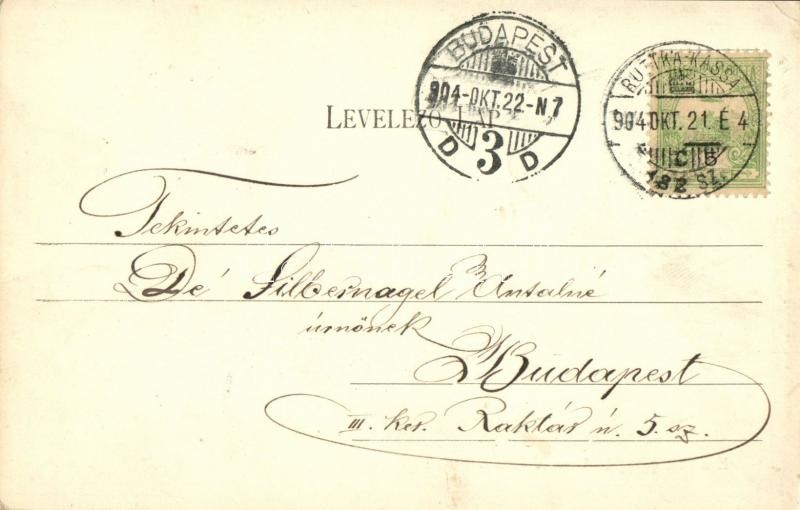 BUDAPEST
904-OKT.22-N7
D 3 D
RUTTKA-KASSA
904 OKT. 21. É 4
C B
182 SZ.
LEVELEZŐ LAP
Tekintetes
Dé Silbernagel Antalné
úrnőnek
Budapest
III. ker. Raktár ú. 5. sz.